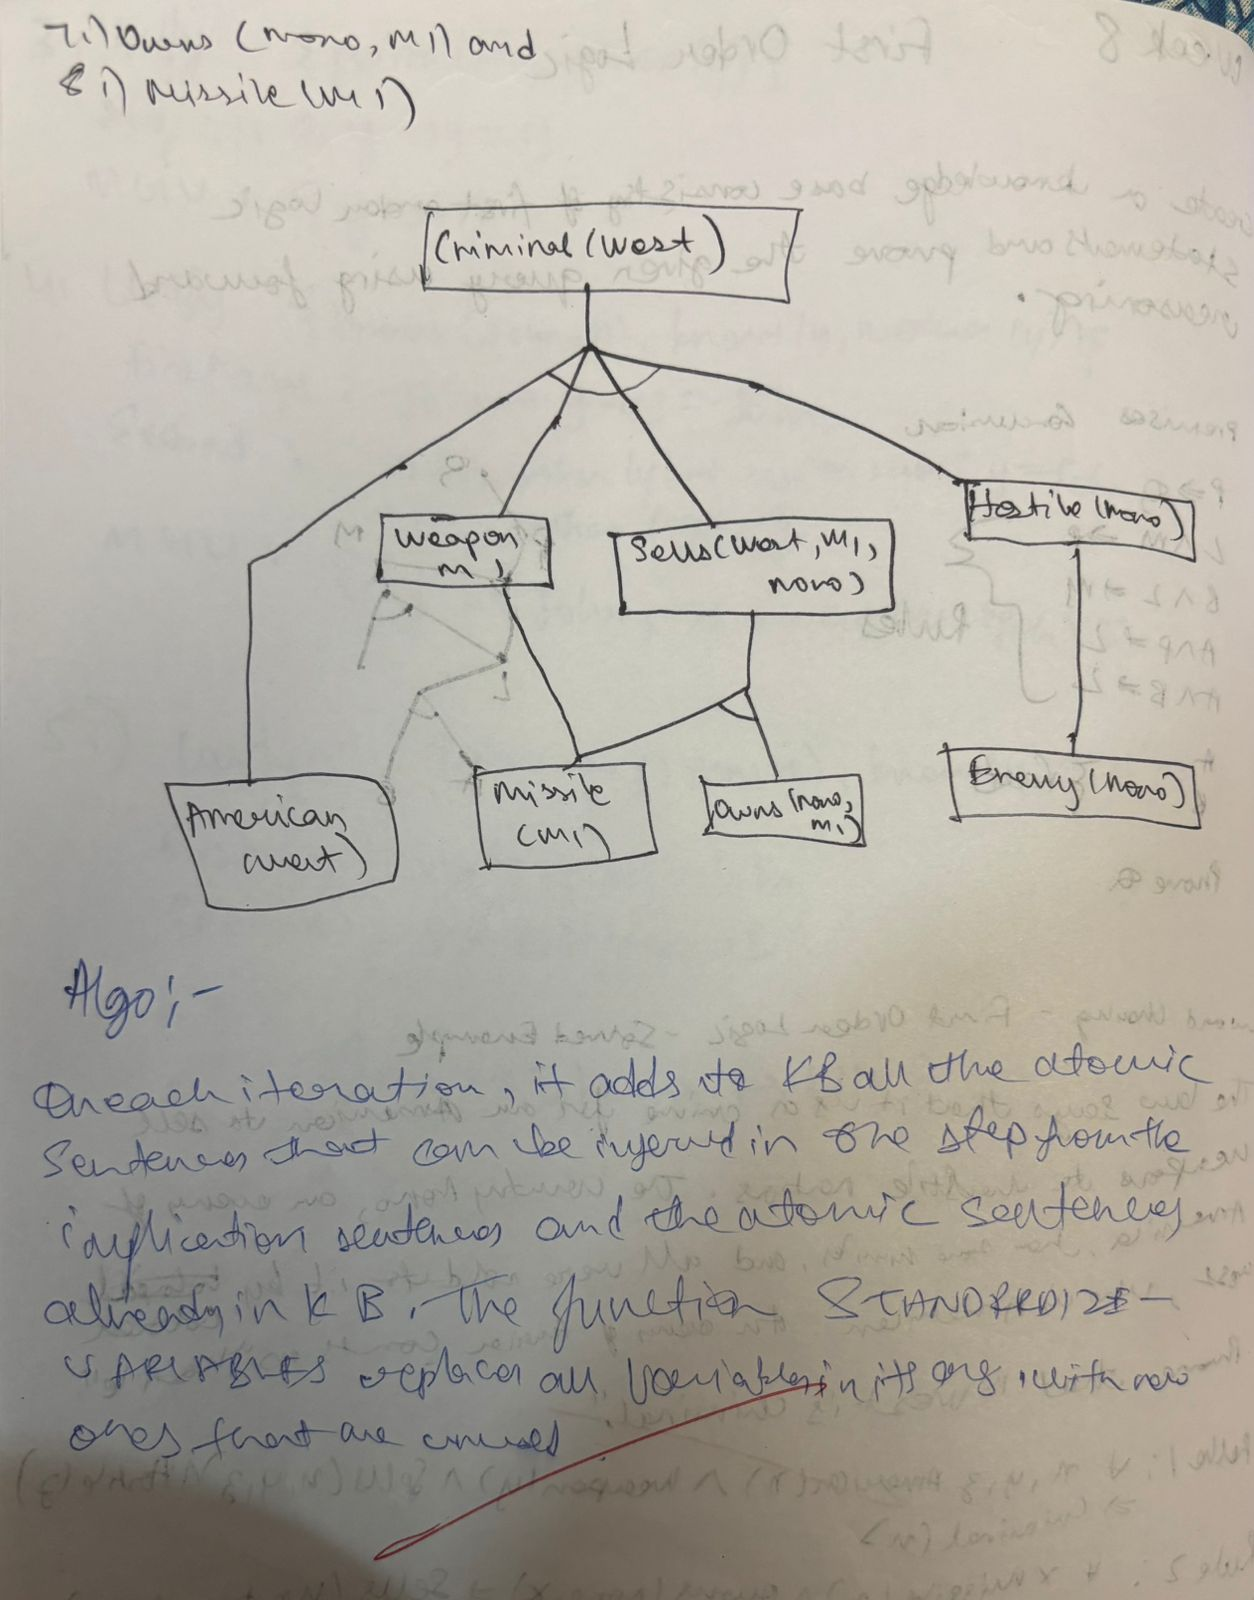 7.) Owns (Nono, M1) and
8.) Missile (M1)
Criminal (West)
Weapon
M1
Sells (West, M1,
Nono)
Hostile (Nono)
American
(West)
Missile
(M1)
Owns (Nono,
M1)
Enemy (Nono)
Algo :-
On each iteration, it adds to KB all the atomic
Sentences that can be inferred in one step from the
implication sentences and the atomic sentences
already in KB. The function STANDARDIZE-
VARIABLES replaces all variables in its arg. with new
ones that are unused